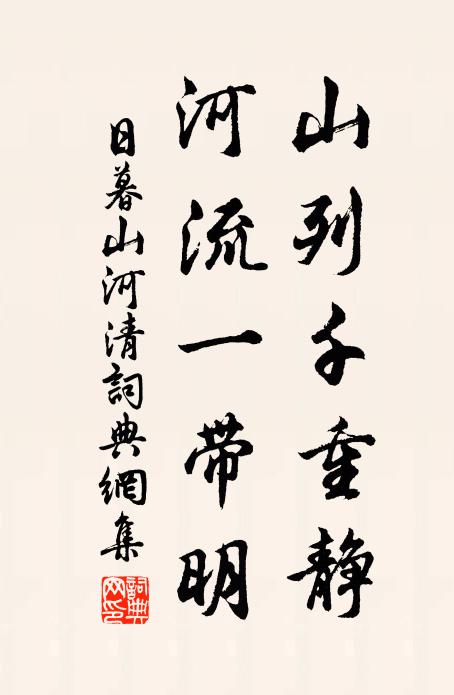 山列千重静
河流一带明
日暮山河清詞典網集
詞典网印